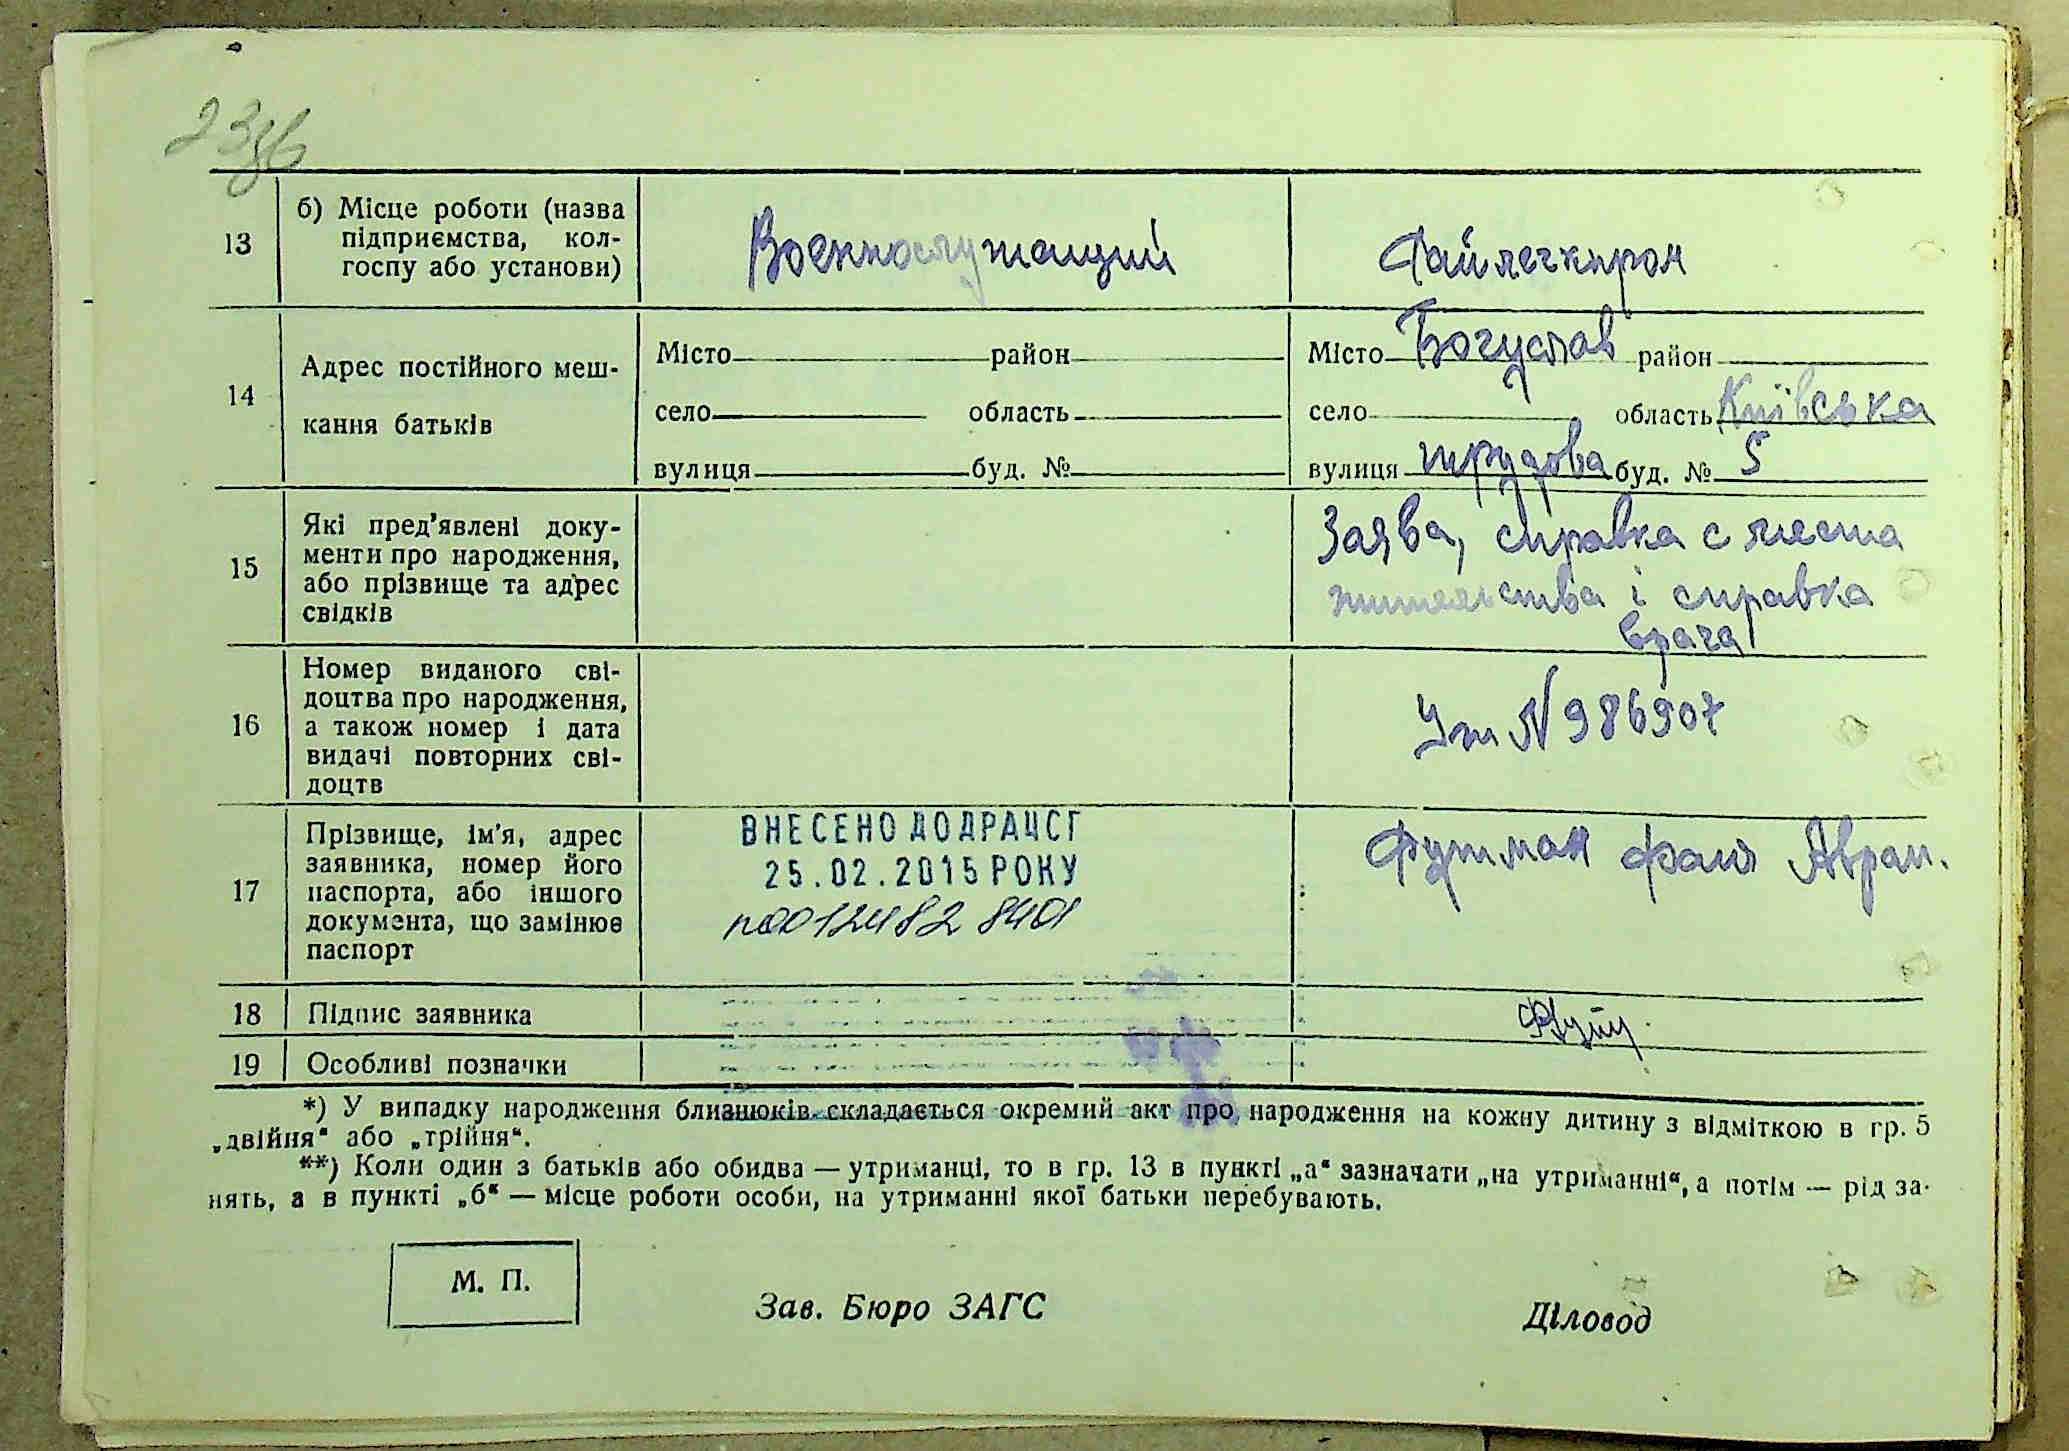 13
б) Місце роботи (назва
підприємства, кол-
госпу або установи)
Военнослужащий
Райлегкпром
14
Адрес постійного меш-
кання батьків
Місто район
село область
вулиця буд. №
Місто Богуслав район
село область Київська
вулиця трудова буд. № 5
15
Які пред'явлені доку-
менти про народження,
або прізвище та адрес
свідків
Заява, справка с места
жительства і справка
врача
16
Номер виданого сві-
доцтва про народження,
а також номер і дата
видачі повторних сві-
доцтв
N 986907
17
Прізвище, ім'я, адрес
заявника, номер його
паспорта, або іншого
документа, що замінює
паспорт
ВНЕСЕНО ДО ДРАЦСГ
25.02.2015 РОКУ
Фаня Аврам.
18
Підпис заявника
19
Особливі позначки
*) У випадку народження близнюків складається окремий акт про народження на кожну дитину з відміткою в гр. 5
„двійня“ або „трійня“.
**) Коли один з батьків або обидва — утриманці, то в гр. 13 в пункті „а“ зазначати „на утриманні“, а потім — рід за-
нять, а в пункті „б“ — місце роботи особи, на утриманні якої батьки перебувають.
М. П.
Зав. Бюро ЗАГС
Діловод